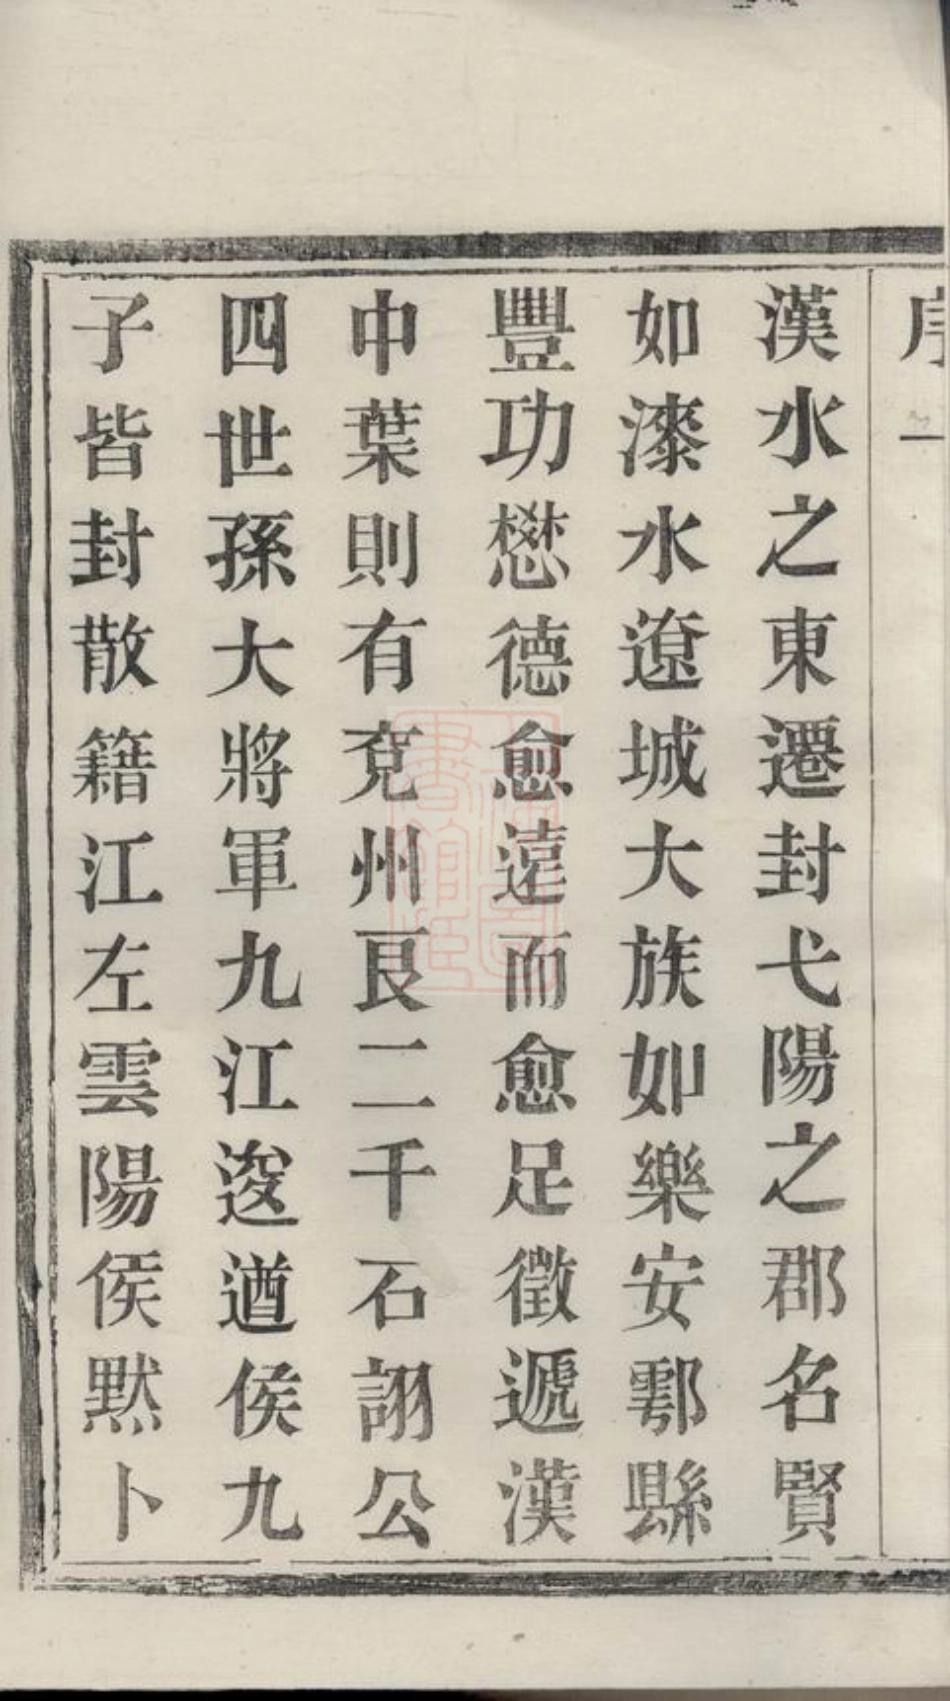 序一
漢水之東遷封弋陽之郡名賢
如漆水遼城大族如樂安鄠縣
豐功懋德愈遠而愈足徵遞漢
中葉則有兗州艮二千石詡公
四世孫大將軍九江逡遒侯九
子皆封散籍江左雲陽侯默卜